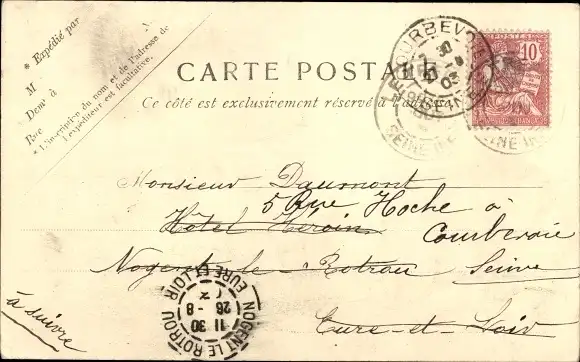 * Expédié par
M
Demt à
Rue
* L'inscription du nom et de l'adresse de
l'expéditeur est facultative.
CARTE POSTALE
Ce côté est exclusivement réservé à l'adresse
COURBEVOIE
30
03
SEINE
10
Monsieur Daumont
5 Rue Hoche à
Hotel Héroin
Courbevoie
Nogent-le-Rotrou Seine
à suivre
Eure-et-Loir
NOGENT LE ROTROU
11 30
26 - 8
EURE ET LOIR